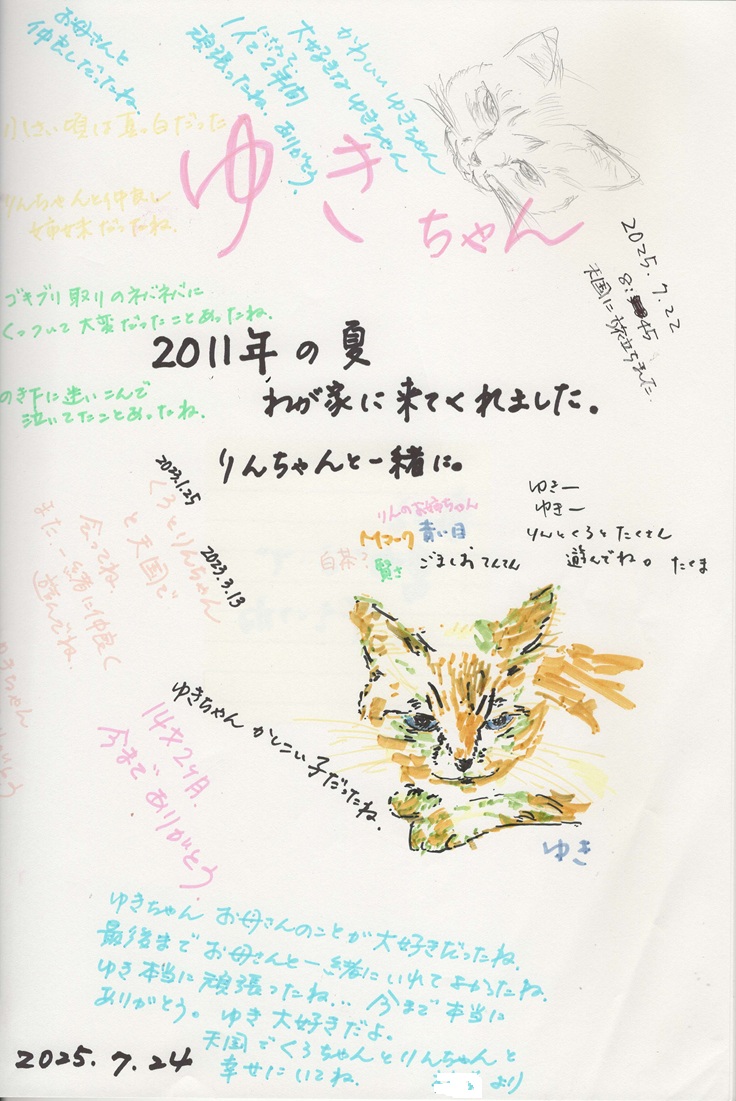 お母さんと
仲良しだったね。
かわいい ゆきちゃん
大好きなゆきちゃん
1人で2年間
頑張ったね。ありがとう。
小さい頃は真っ白だった
ゆきちゃん
りんちゃんと仲良し
姉妹だったね。
2025.7.22
8:45
天国に旅立ちました。
ゴキブリ取りのネバネバに
くっついて大変だったことあったね。
2011年の夏
わが家に来てくれました。
りんちゃんと一緒に。
のき下に迷いこんで
泣いてたことあったね。
2023.1.25
2023.3.13
くろとりんちゃん
と天国で
会ってね。
また、一緒に仲良く
遊んでね。
りんのお姉ちゃん
Mマーク 青い目
白茶?
賢さ ごましお てんてん
ゆきー
ゆきー
りんとくろとたくさん
遊んでね。 たくま
ゆきちゃん かしこい子だったね。
14才2ヶ月。
今まで ありがとう。
ゆき
ゆきちゃん お母さんのことが大好きだったね。
最後までお母さんと一緒にいれてよかったね。
ゆき本当に頑張ったね… 今まで本当に
ありがとう。 ゆき大好きだよ。
天国でくろちゃんとりんちゃんと
幸せにいてね。
より
2025.7.24